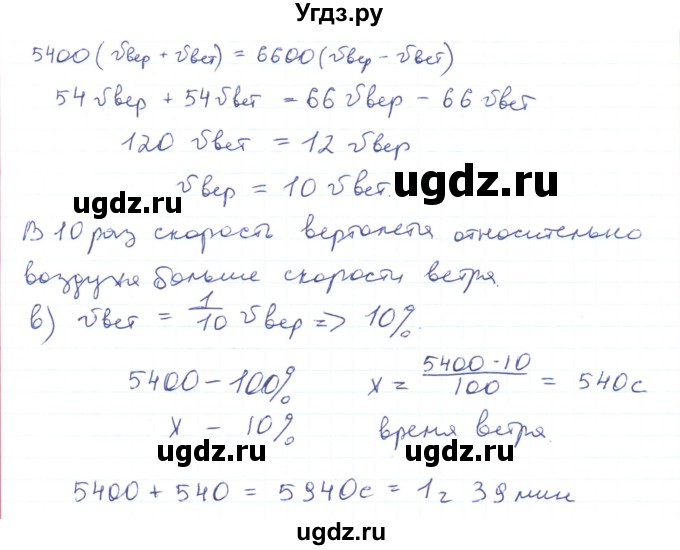 Угдз.ру
5400(vвер + vвет) = 6600(vвер - vвет)
54 vвер + 54 vвет = 66 vвер - 66 vвет
120 vвет = 12 vвер
vвер = 10 vвет.
ugdz.ru
ugdz.ru
В 10 раз скорость вертолета относительно
воздуха больше скорости ветра.
в) vвет = 1/10 vвер => 10%.
ugdz.ru
5400 - 100% x = 5400·10/100 = 540с
x - 10% время ветра.
ugdz.ru
ugdz.ru
5400 + 540 = 5940с = 1ч 39 мин
ugdz.ru